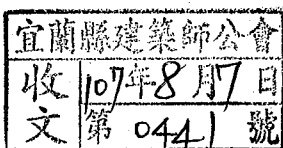 宜蘭縣建築師公會
收文
107年8月7日
第0441號